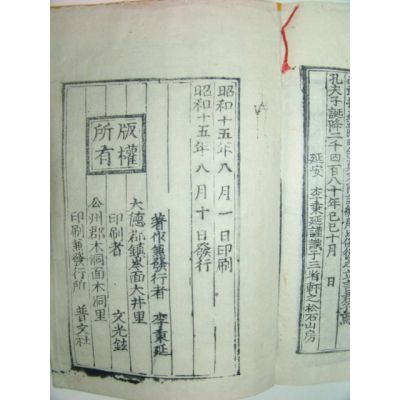 孔夫子誕降二千四百八十年己巳十月 日
延安 李秉延謹識于三省軒之松石山房
昭和十五年八月一日印刷
昭和十五年八月十日發行
版權
所有
著作兼發行者 李秉延
大德郡鎭岑面大井里
印刷者 文光鉉
公州郡木洞面木洞里
印刷兼發行所 普文社